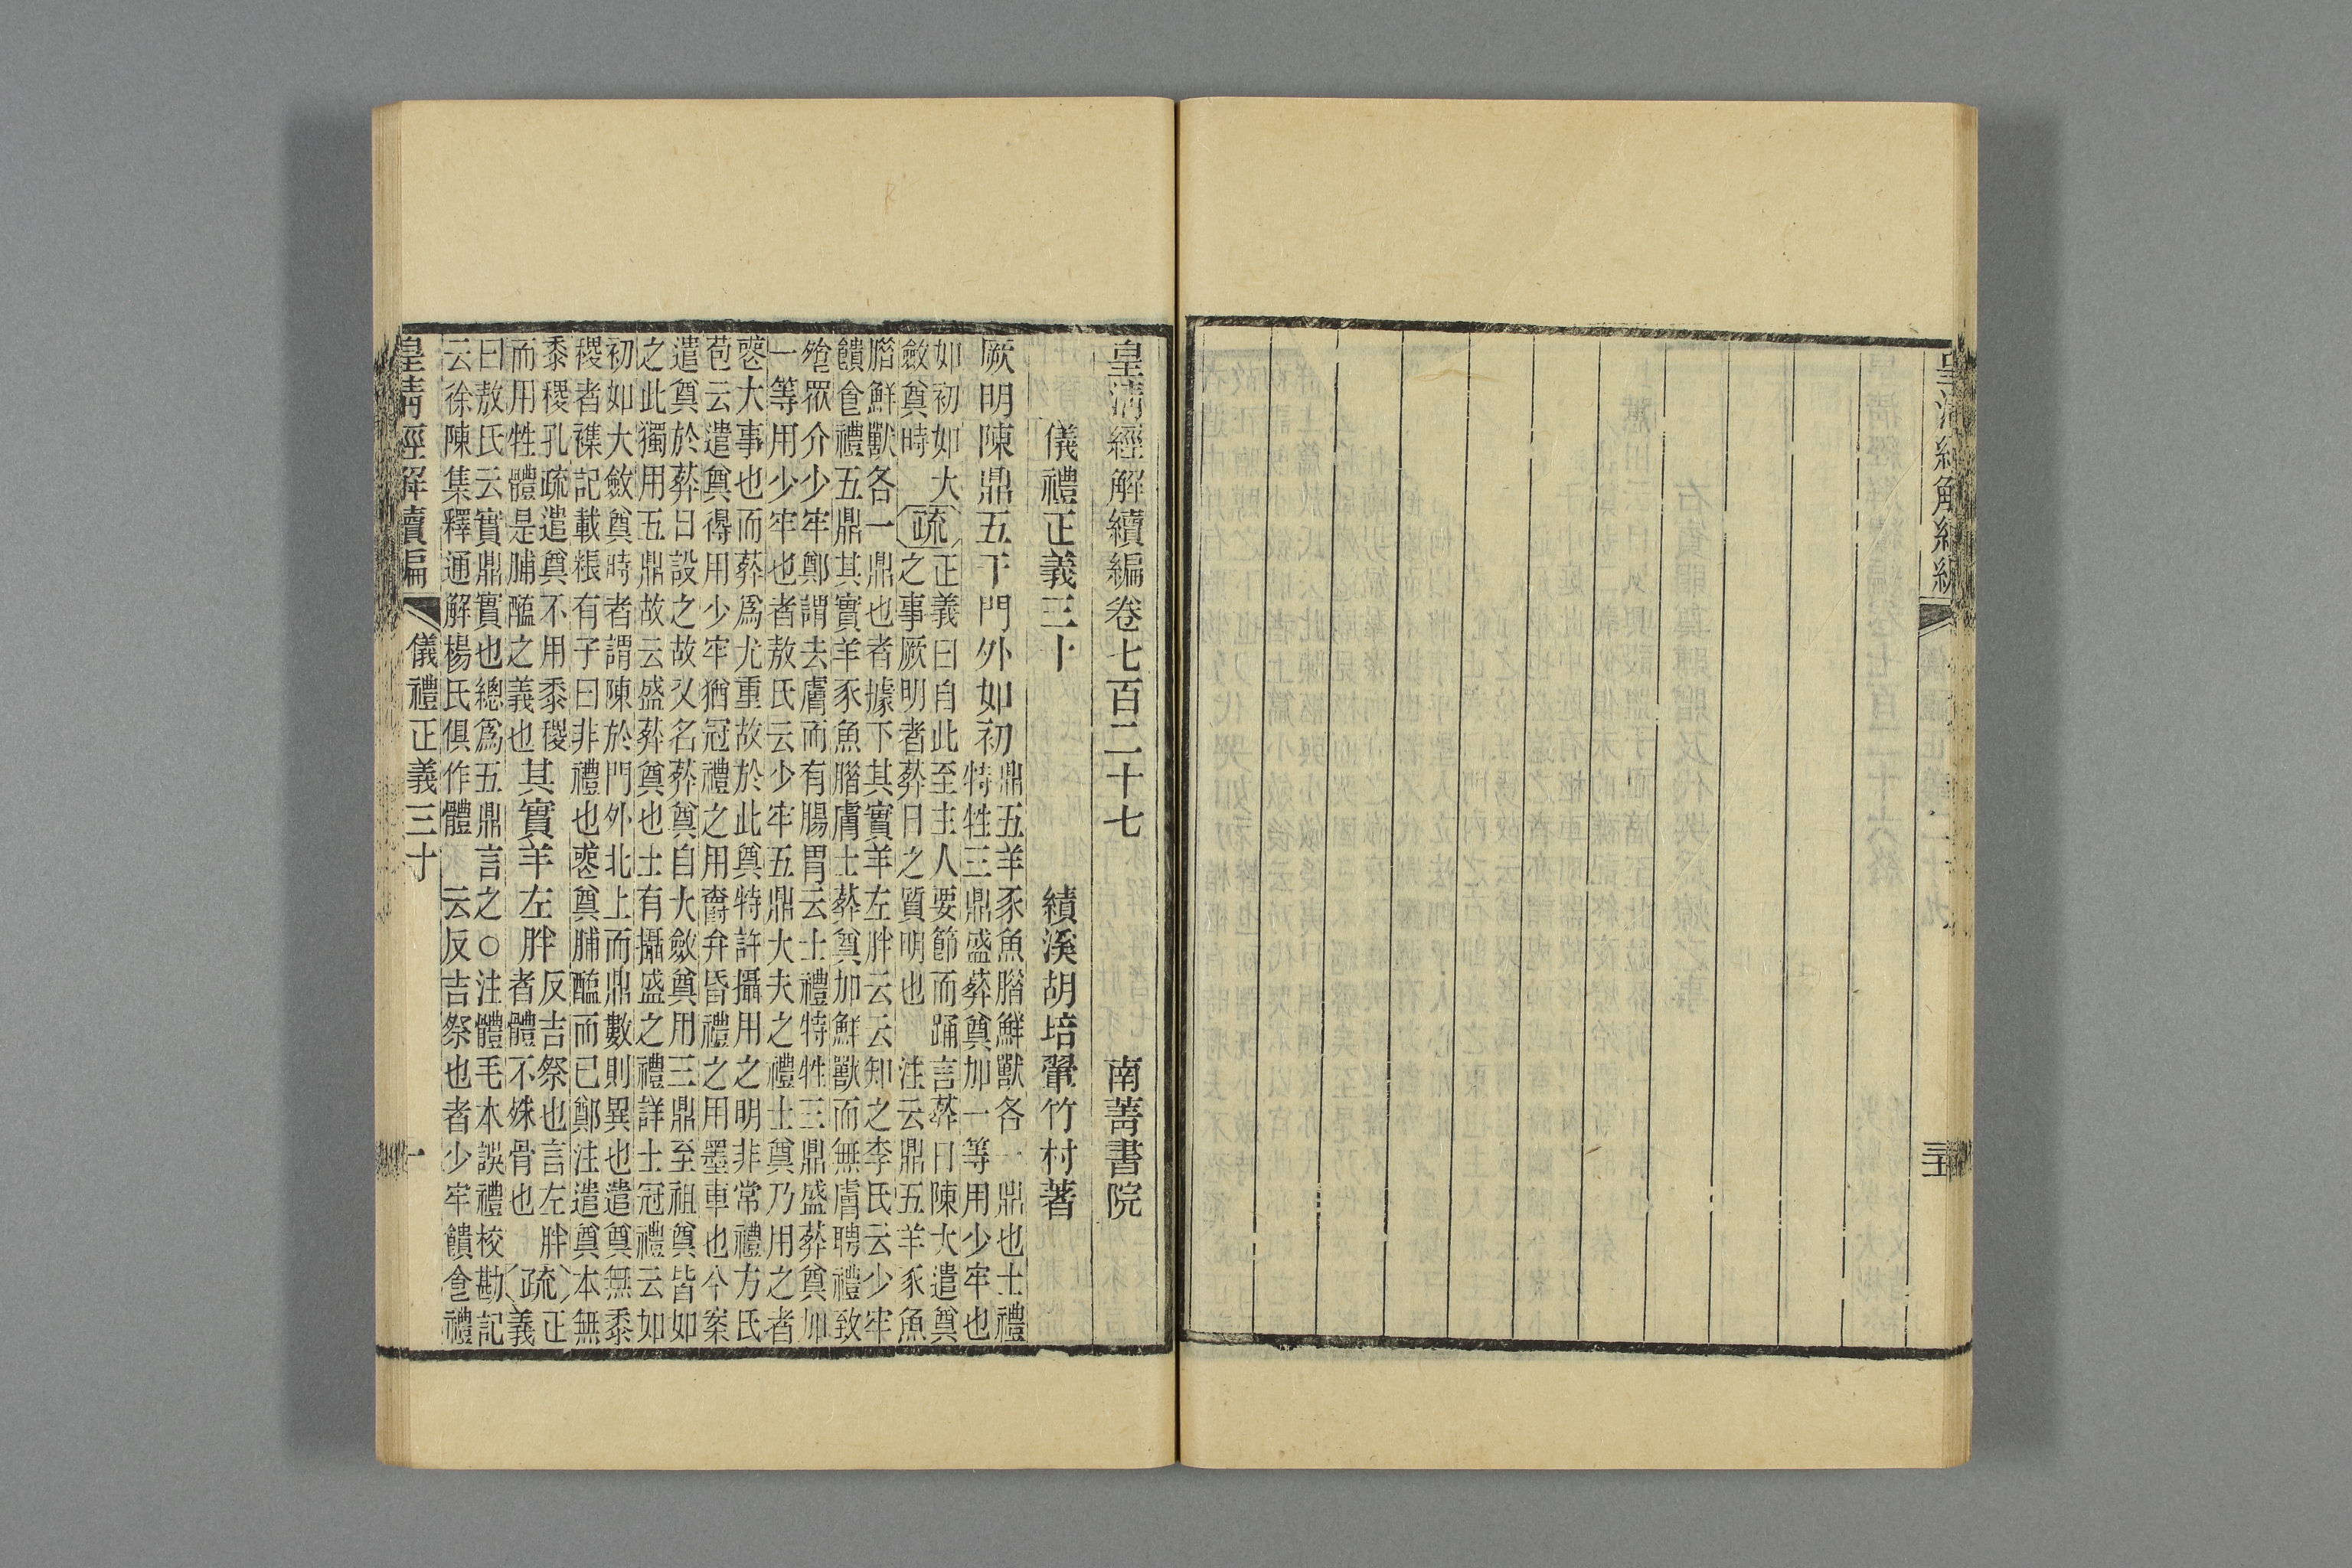 皇清經解續編
皇清經解續編卷七百二十七　南菁書院
儀禮正義三十　績溪胡培翬竹村著
厥明陳鼎五于門外如初
鼎五羊豕魚腊鮮獸各一鼎也士禮
特牲三鼎盛葬奠加一等用少牢也
如初如大
斂奠時
疏
正義曰自此至主人要節而踊言葬日陳大遣奠
之事厥明者葬日之質明也　注云鼎五羊豕魚
腊鮮獸各一鼎也者據下其實羊左胖云云知之李氏云少牢
饋食禮五鼎其實羊豕魚腊膚士葬奠加鮮獸而無膚聘禮致
飧眾介少牢鄭謂去膚而有腸胃云士禮特牲三鼎盛葬奠加
一等用少牢也者敖氏云少牢五鼎大夫之禮士奠乃用之者
喪大事也而葬爲尤重故於此奠特許攝用之明非常禮方氏
苞云遣奠得用少牢猶冠禮之用爵弁昏禮之用墨車也今案
遣奠於葬日設之故又名葬奠自大斂奠用三鼎至祖奠皆如
之此獨用五鼎故云盛葬奠也士有攝盛之禮詳士冠禮云如
初如大斂奠時者謂陳於門外北上而鼎數則異也遣奠無黍
稷者襍記載粻有子曰非禮也喪奠脯醢而已鄭注遣奠本無
黍稷孔疏遣奠不用黍稷
而用牲體是脯醢之義也
其實羊左胖
反吉祭也言左胖
者體不殊骨也
疏
正
義
曰敖氏云實鼎實也總爲五鼎言之○注體毛本誤禮校勘記
云徐陳集釋通解楊氏俱作體　云反吉祭也者少牢饋食禮
皇清經解續編　儀禮正義三十　一